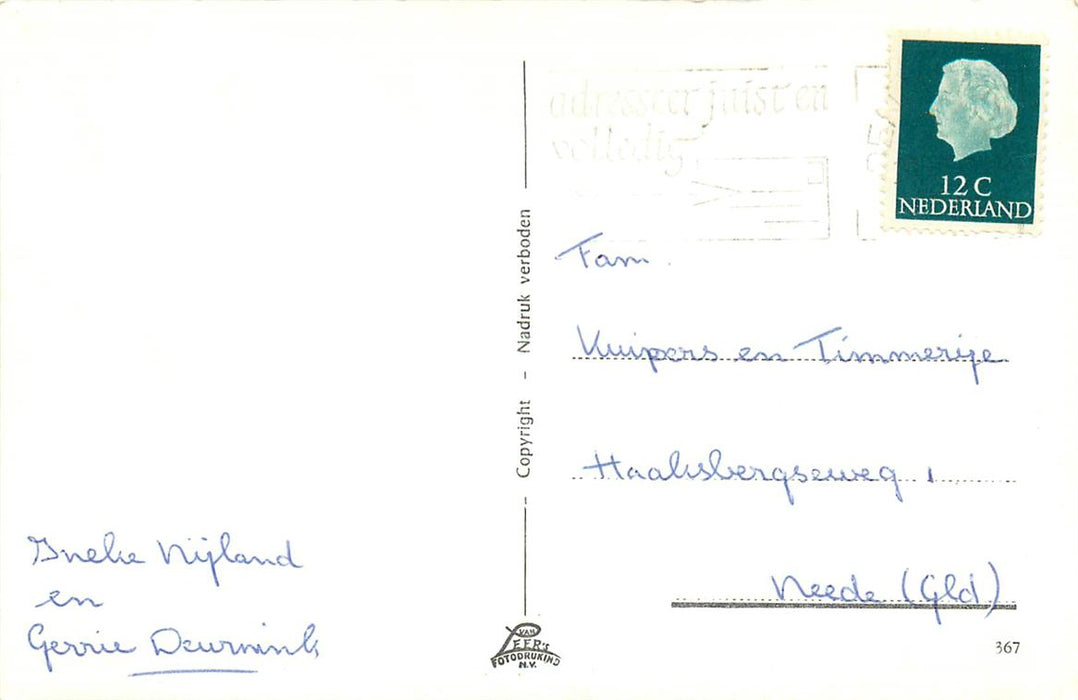 adresseer juist en
volledig
12 C
NEDERLAND
Fam.
Kuipers en Timmerije
Haaksbergseweg 1
Neede (Gld)
Copyright - Nadruk verboden
Ineke Nijland
en
Gerrie Deurnink
VAN
LEER's
FOTODRUKIND
N.V.
367